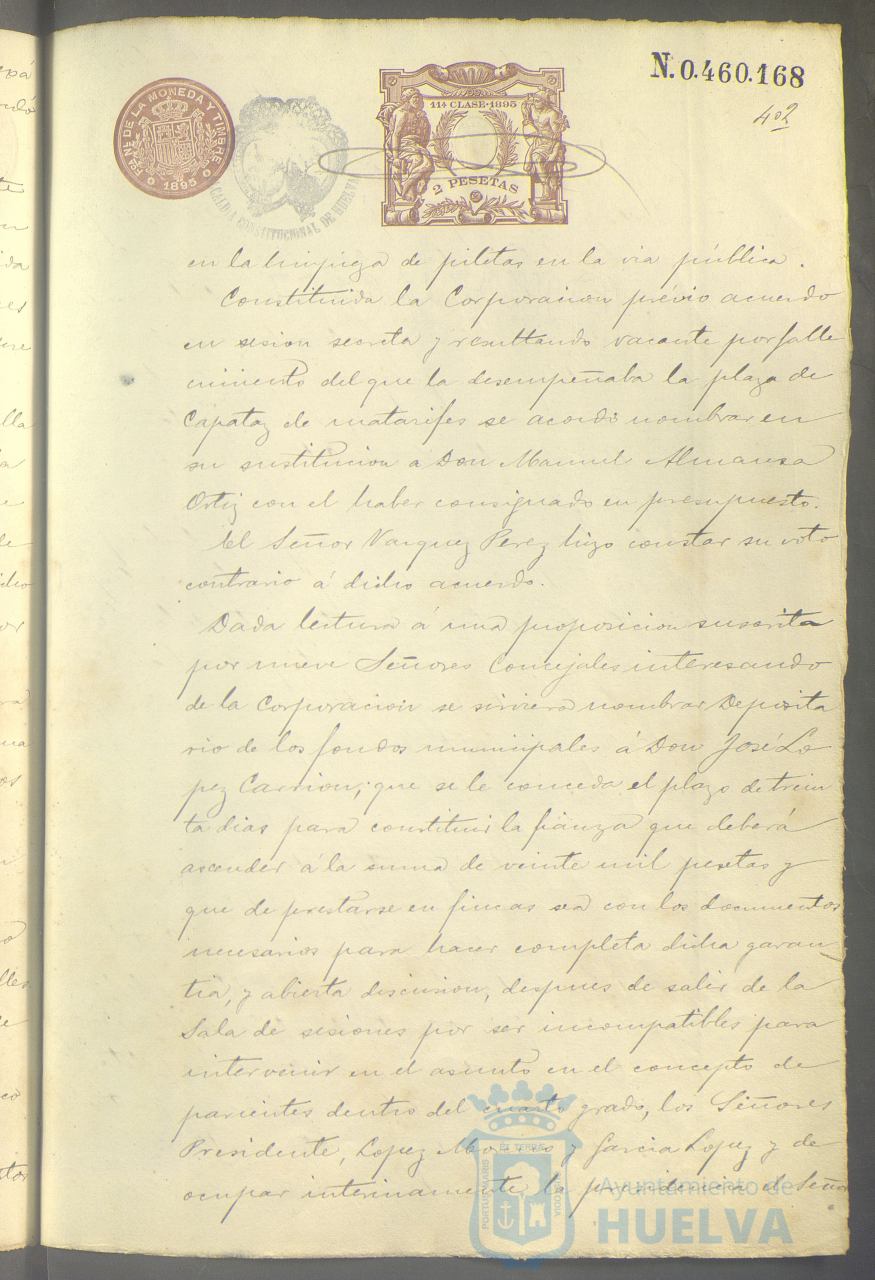 N. 0.460.168
402
FCA. NL. DE LA MONEDA Y TIMBRE
1895
CONSTITUCIONAL DE HUELVA
11ª CLASE · 1895
2 PESETAS
en la limpieza de piletas en la via pública.
Constituida la Corporacion prévio acuerdo
en sesion secreta y resultando vacante por falle
cimiento del que la desempeñaba la plaza de
Capataz de matarifes se acordó nombrar en
su sustitucion a Don Manuel Almansa
Ortiz con el haber consignado en presupuesto.
El Señor Vazquez Perez hizo constar su voto
contrario á dicho acuerdo.
Dada lectura á una proposicion suscrita
por nueve Señores Concejales interesando
de la Corporacion se sirviera nombrar Deposita
rio de los fondos municipales á Don José Lo
pez Carrion, que se le conceda el plazo de trein
ta dias para constituir la fianza que deberá
ascender á la suma de veinte mil pesetas y
que de prestarse en fincas sea con los documentos
necesarios para hacer completa dicha garan
tia, y abierta discusion, despues de salir de la
Sala de sesiones por ser incompatibles para
intervenir en el asunto en el concepto de
parientes dentro del cuarto grado, los Señores
Presidente, Lopez y Garcia Lopez y de
ocupar interinamente la presidencia el Señor
PORTUS MARIS
ET TERRE
CUSTODIA
Ayuntamiento de
HUELVA